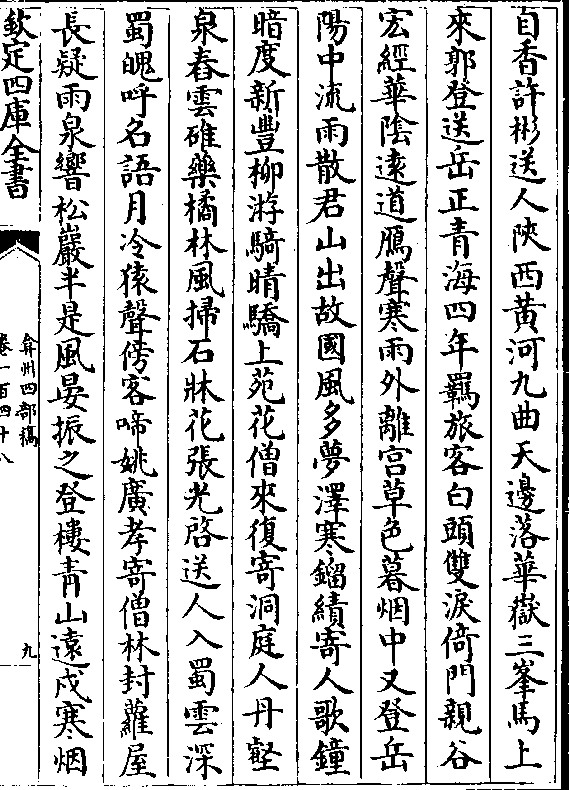 自香許彬送人陜西黄河九曲天邊落華嶽三峯馬上
來郭登送岳正青海四年羈旅客白頭雙淚倚門親谷
宏經華陰逺道鴈聲寒雨外離宫草色暮烟中又登岳
陽中流雨散君山出故國風多夢澤寒鎦績寄人歌鐘
暗度新豐柳游騎晴驕上苑花僧來復寄洞庭人丹壑
泉舂雲碓藥橘林風掃石牀花張光啓送人入蜀雲深
蜀魄呼名語月冷猿聲傍客啼姚廣孝寄僧林封蘿屋
長疑雨泉響松巖半是風晏振之登樓青山遠戍寒烟
欽定四庫全書
弇州四部稿
卷一百四十八
九